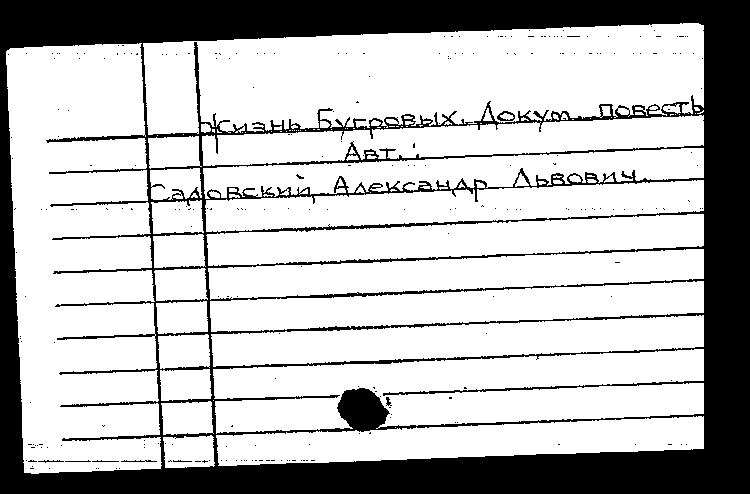 Жизнь Бугровых. Докум. повесть
Авт.:
Садовский, Александр Львович.